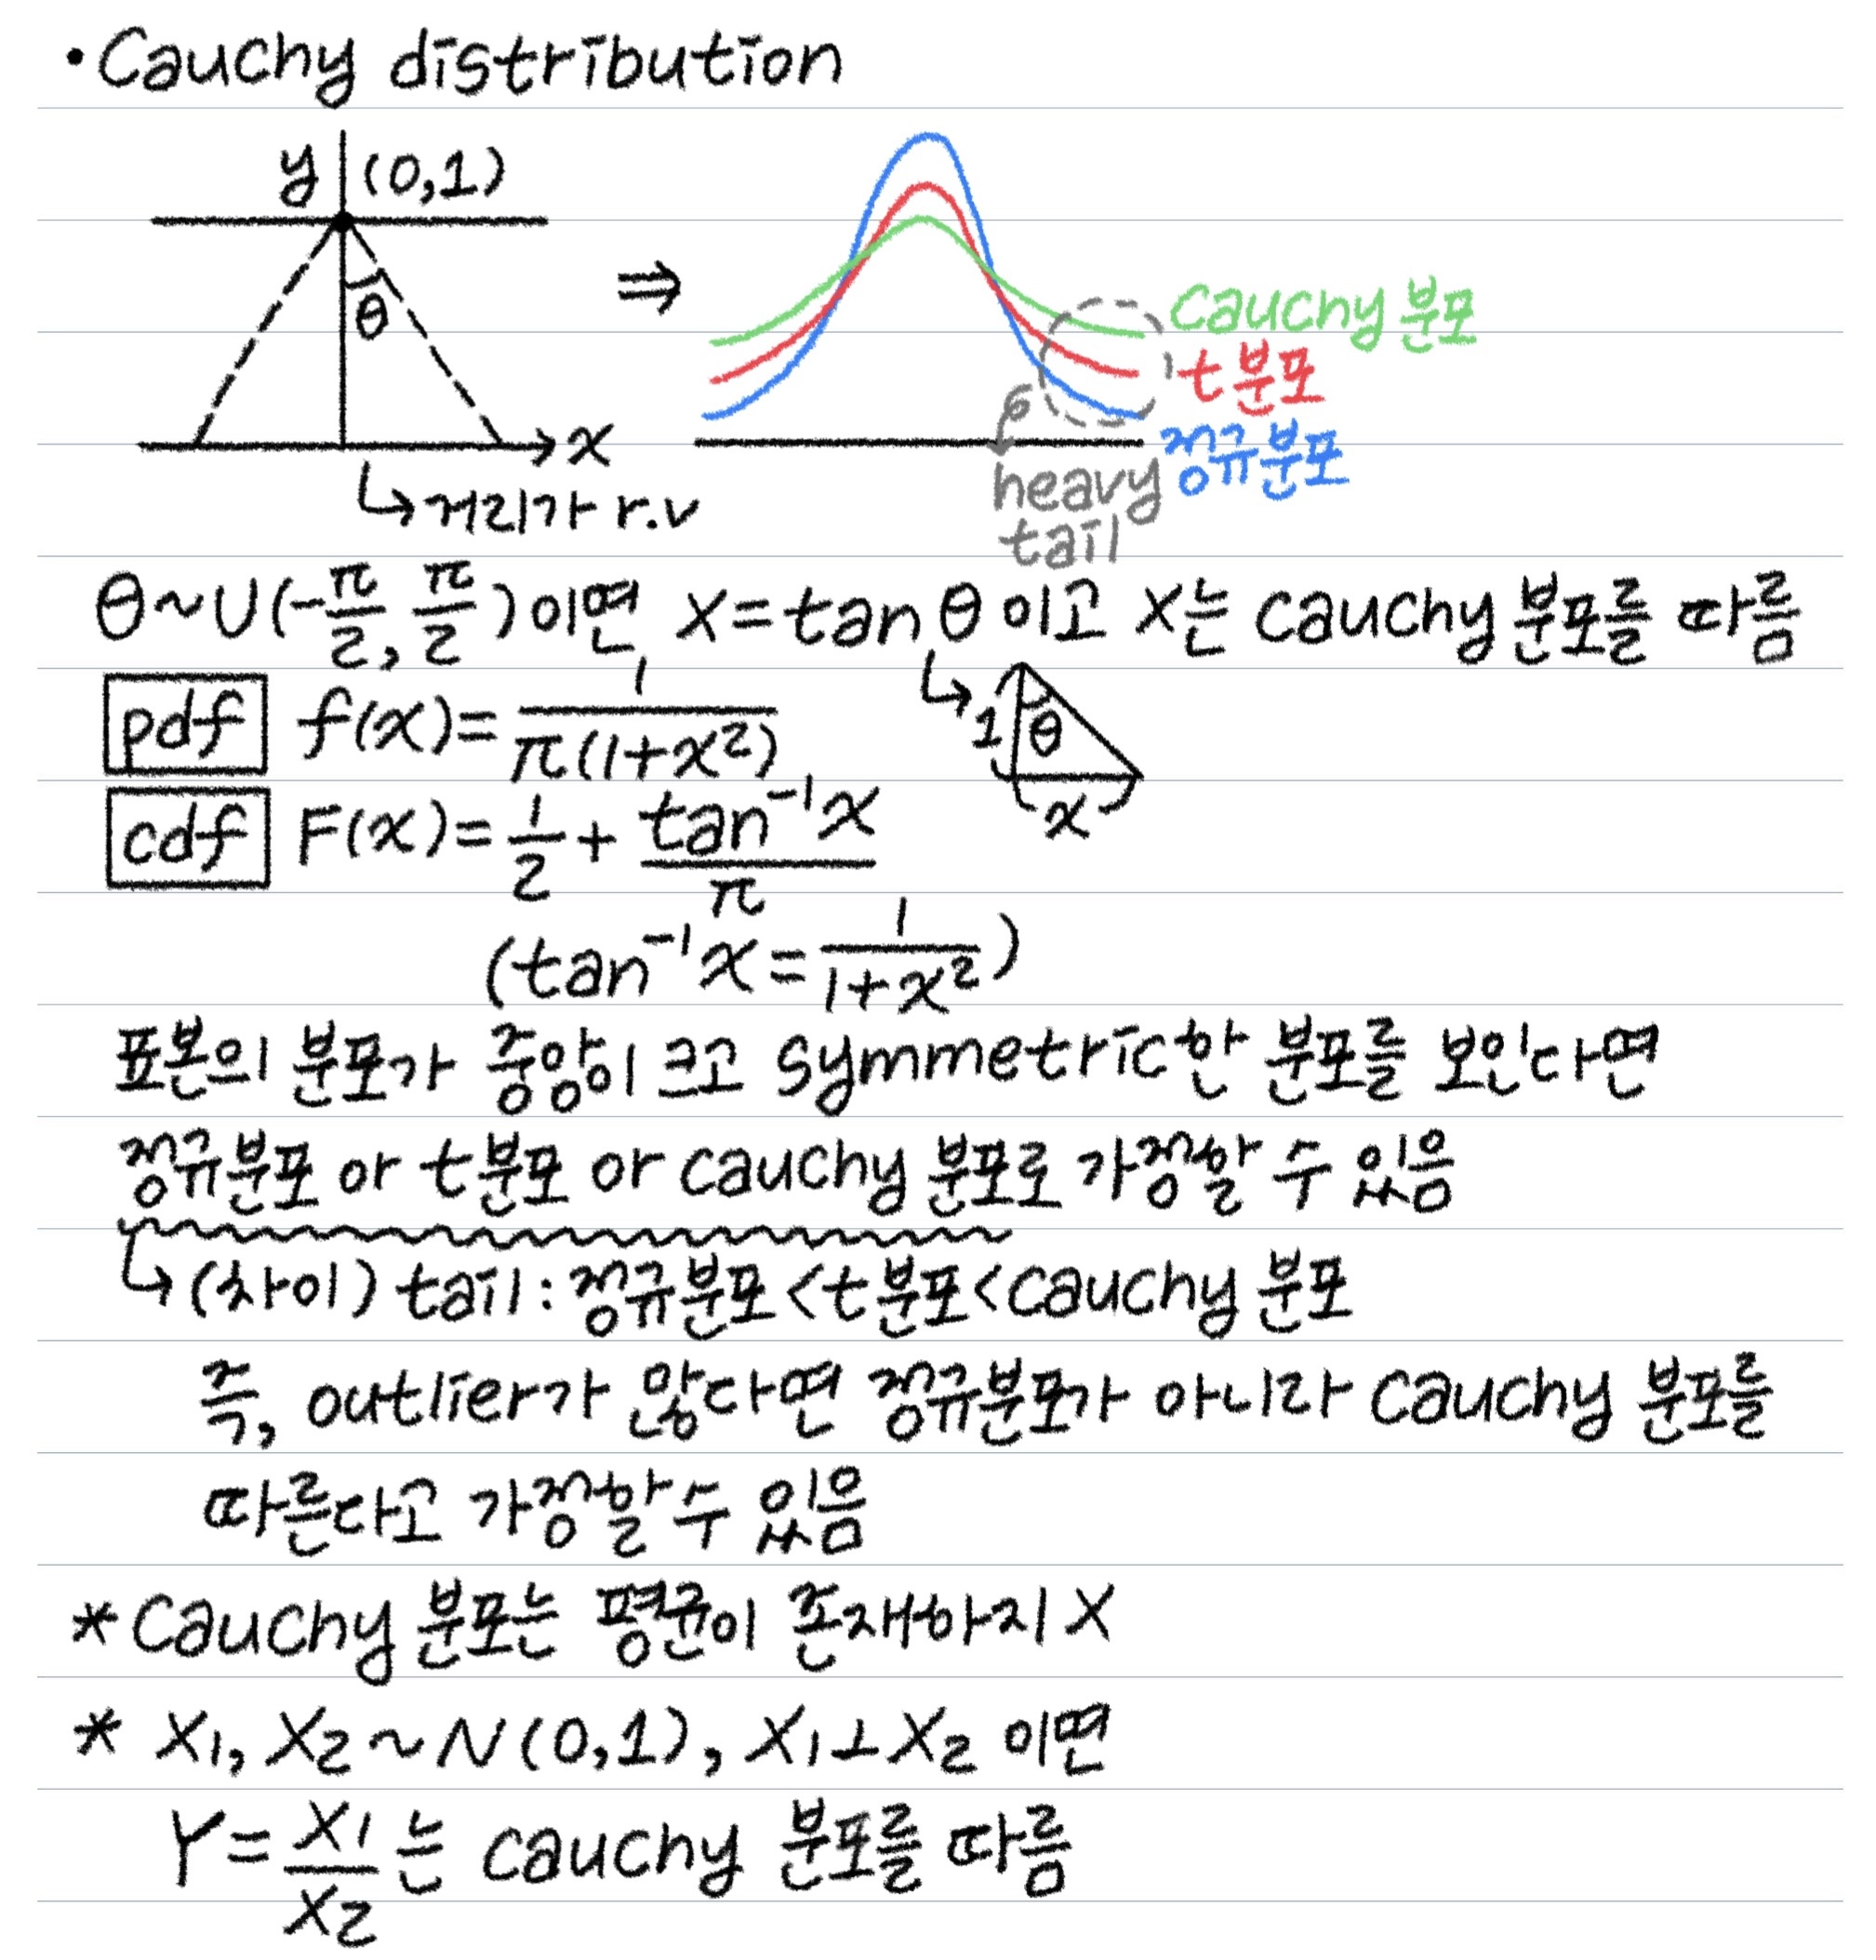 • Cauchy distribution
y (0,1)
θ
x
↳ 거리가 r.v
⇒
Cauchy 분포
t분포
정규분포
heavy
tail
θ~U(-π/2, π/2)이면 X=tanθ이고 X는 cauchy 분포를 따름
↳ 1 θ x
pdf f(x)= 1/π(1+x²)
cdf F(x)= 1/2 + tan⁻¹x/π
(tan⁻¹x = 1/1+x²)
표본의 분포가 중앙이 크고 symmetric한 분포를 보인다면
정규분포 or t분포 or cauchy 분포로 가정할 수 있음
↳ (차이) tail : 정규분포<t분포<cauchy 분포
즉, outlier가 많다면 정규분포가 아니라 cauchy 분포를
따른다고 가정할 수 있음
* Cauchy 분포는 평균이 존재하지 X
* X₁, X₂ ~ N(0,1), X₁⊥X₂ 이면
Y= X₁/X₂ 는 cauchy 분포를 따름